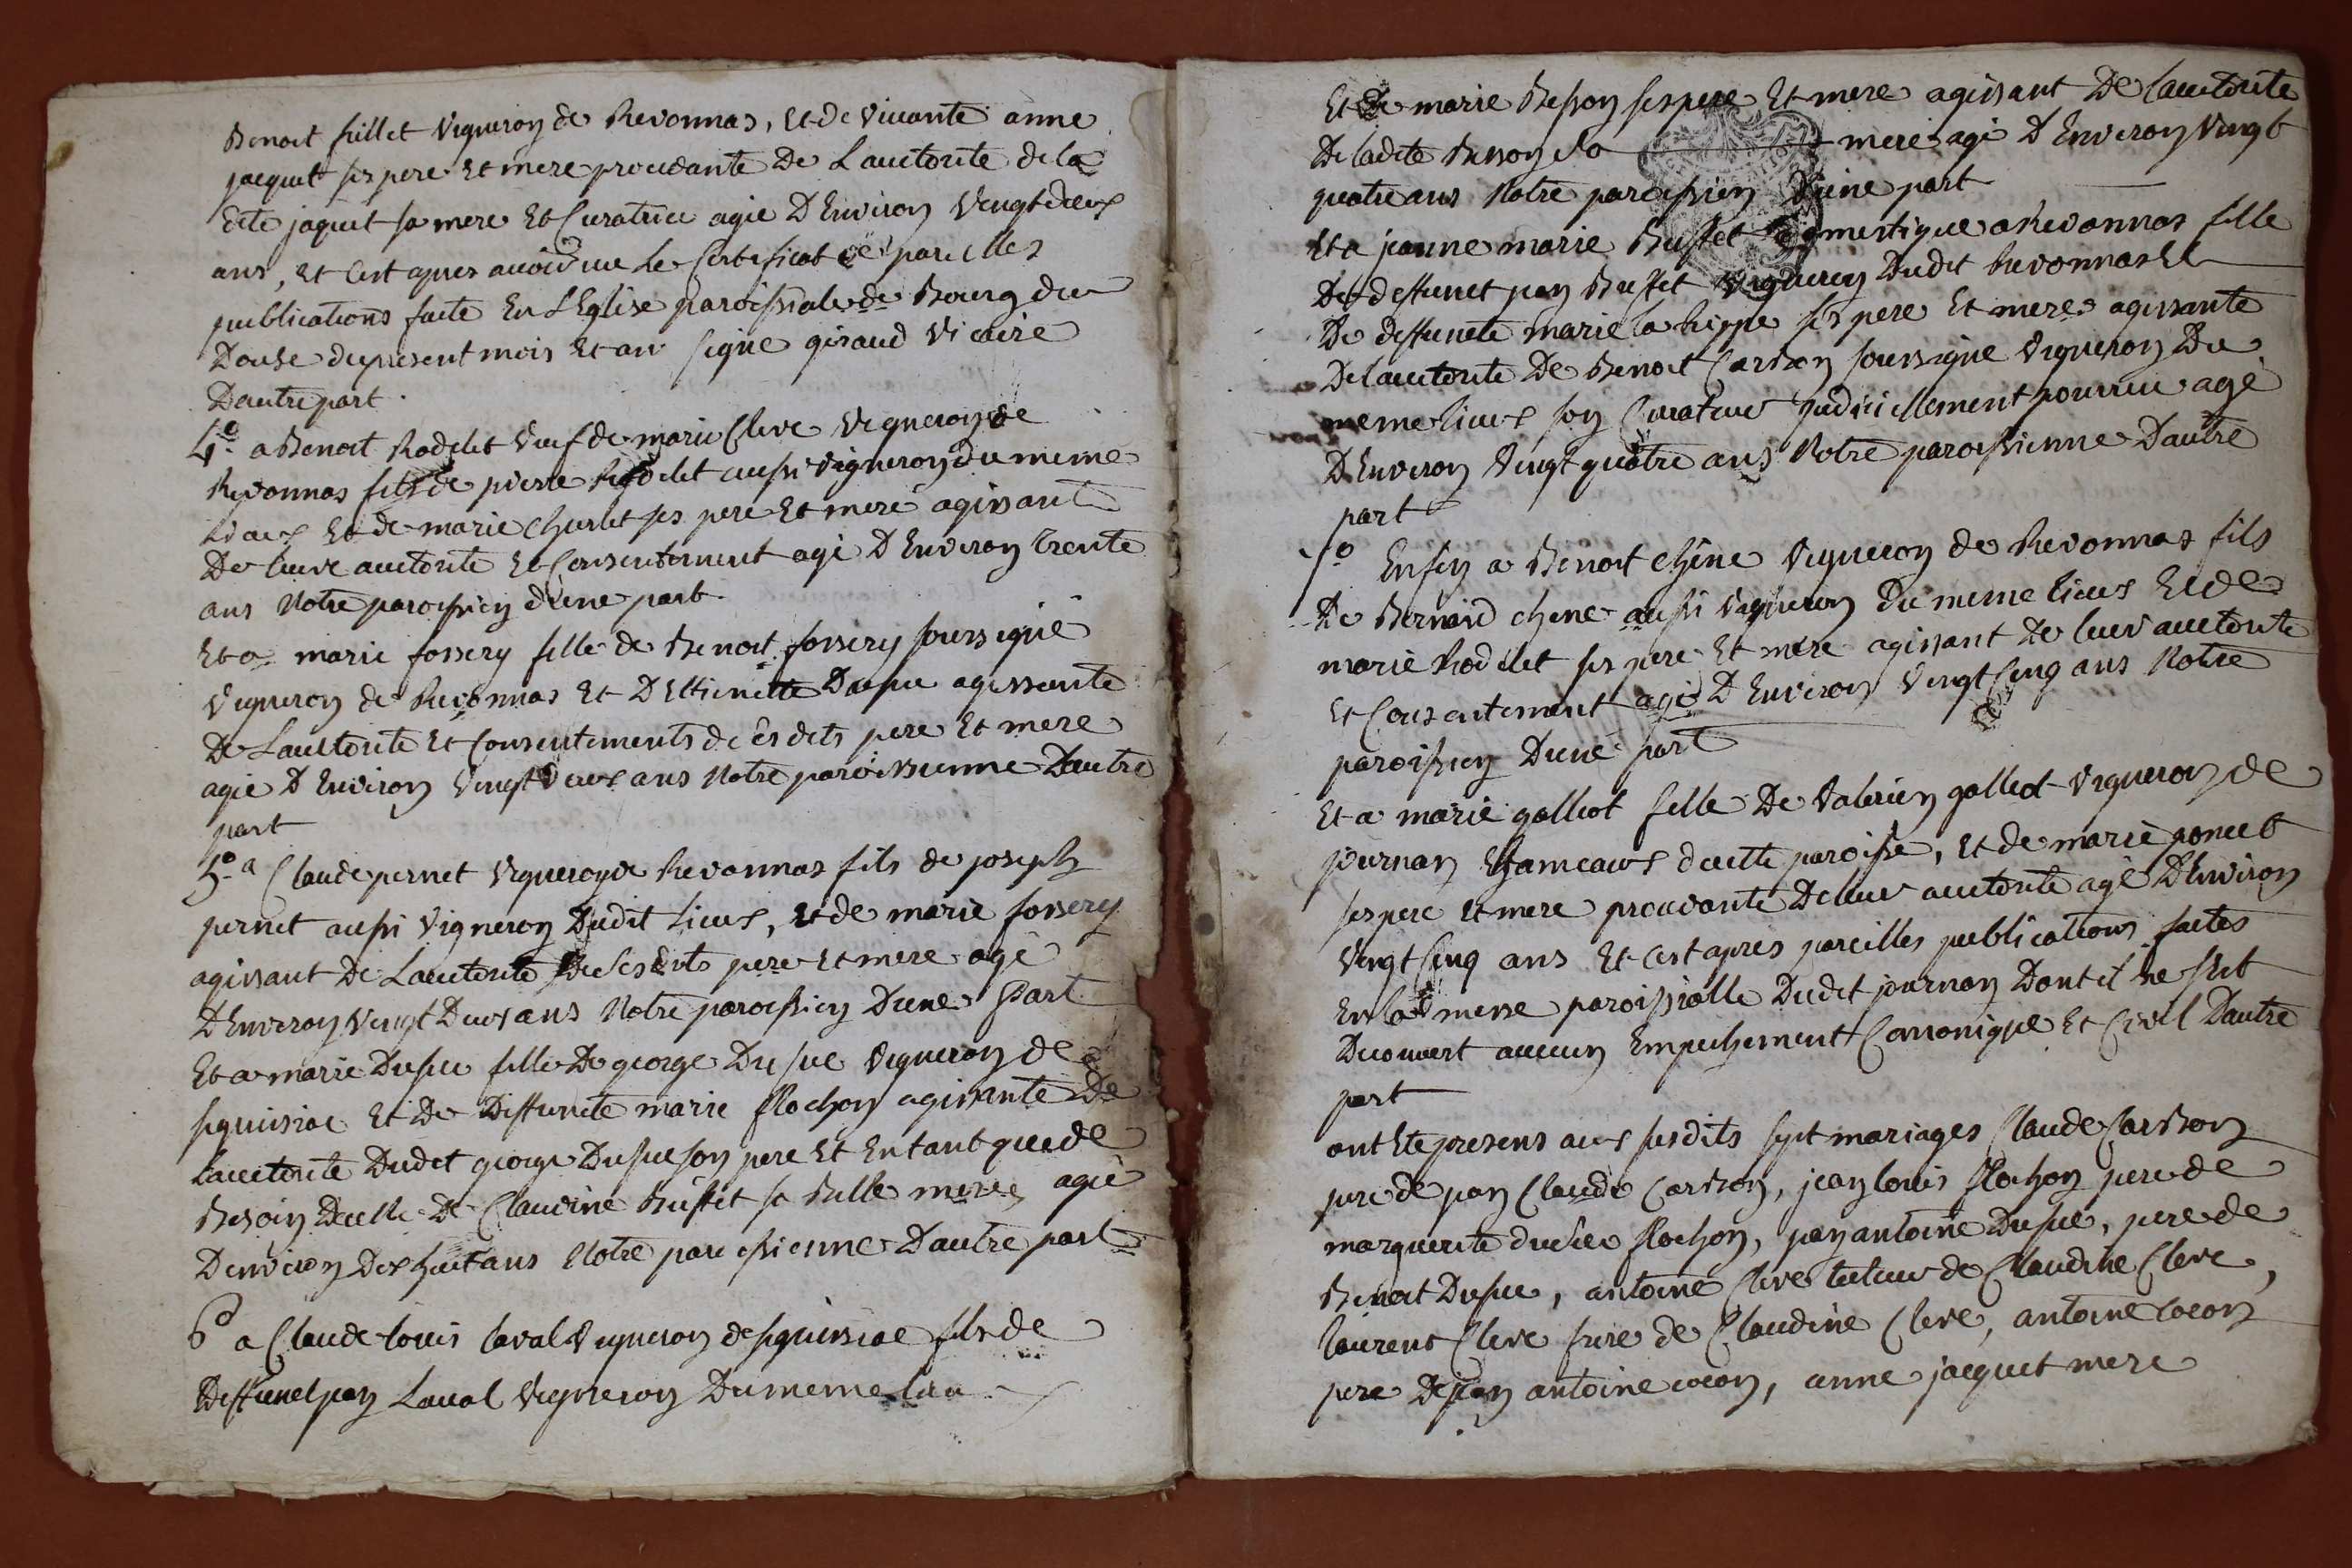 Benoit fillet vigneron de Revonnas, et de vivante anne
jaquet ses pere et mere procedante De Lauctorite de la
dite jaquet sa mere et Curatrice agée D'Environ vingt deux
ans, et cest apres avoir vue Le Certificat de pareilles
publications faite En L'Eglise paroissiale de Bourg du
Douse du present mois et an signé giraud vicaire
Dautre part.
4.o a Benoit Rodelet veuf de marie Cleve vigneron de
Revonnas fils de pierre Rodelet aussi vigneron du meme
Lieux et de marie Charlet ses pere et mere agissant
De leure auctorite et Consentement agé D'Environ trente
ans Notre paroissien d'une part.
Et a marie fossery fille de Benoit fossery soussigné
vigneron de Revonnas et D'Ettienette Dupue agissante
De Lauctorite et Consentements de ses dits pere et mere
agée D'Environ vingt Deux ans Notre paroissienne Dautre
part
5.o a Claude pernet vigneron de Revonnas fils de joseph
pernet aussi vigneron Dudit Lieux, et de marie fossery
agissant de Lauctorite De ses dits pere et mere agé
D'Environ vingt Deux ans Notre paroissien D'une Part
Et a marie Dupue fille De george Dupue vigneron de
squissiac et De Deffuncte marie flochon agissante De
Lauctorite Dudit george Dupue son pere et En tant que de
Besoin De celle De Claudine Buffet sa Belle mere, agée
Denviron Dex huit ans Notre paroissienne Dautre part
6o a Claude Louis Laval vigneron de squissiac fils de
Deffunct jean Laval vigneron Du meme lieu
Et De marie Besson ses pere Et mere agissant De lauctorite
De ladite Besson sa mere agé D'Environ vingt
quatre ans Notre paroissien D'une part
Et a jeanne marie Buffet domestique a Revonnas fille
De deffunct jean Buffet vigneron Dudit Revonnas Et
De deffuncte marie la hippe ses pere Et mere agissante
De lauctorite De Benoit Cardon soussigné vigneron Du
meme lieux son Curateur judiciellement pourvue agé
D'Environ vingt quatre ans Notre paroissienne Dautre
part
7o Enfin a Benoit chêne vigneron de Revonnas fils
De Bernard chene aussi vigneron Du meme lieux Et de
marie Rodelet ses pere Et mere agissant De leur auctorite
Et Consentement agé D'Environ vingt Cinq ans Notre
paroissien D'une part
Et a marie galliot fille De valerien galliot vigneron de
journan hameaux de cette paroisse, et de marie poncet
ses pere et mere procedante De leur auctorite agé D'Environ
vingt Cinq ans Et cest apres pareilles publications faites
En la messe paroissialle Dudit journan Dont il ne s'est
Decouvert aucun Empechement Canonique Et Civil Dautre
part
ont Ete presens aux susdits sept mariages Claude Cardon
pere de jean Claude Cardon, jean louis flochon pere de
marguerite du dit flochon, jean antoine Dupue, pere de
Benoit Dupue, antoine Cleve tuteur de Claudine Cleve,
laurent Cleve frere de Claudine Cleve, antoine cocon
pere De jean antoine cocon, anne jacquet mere